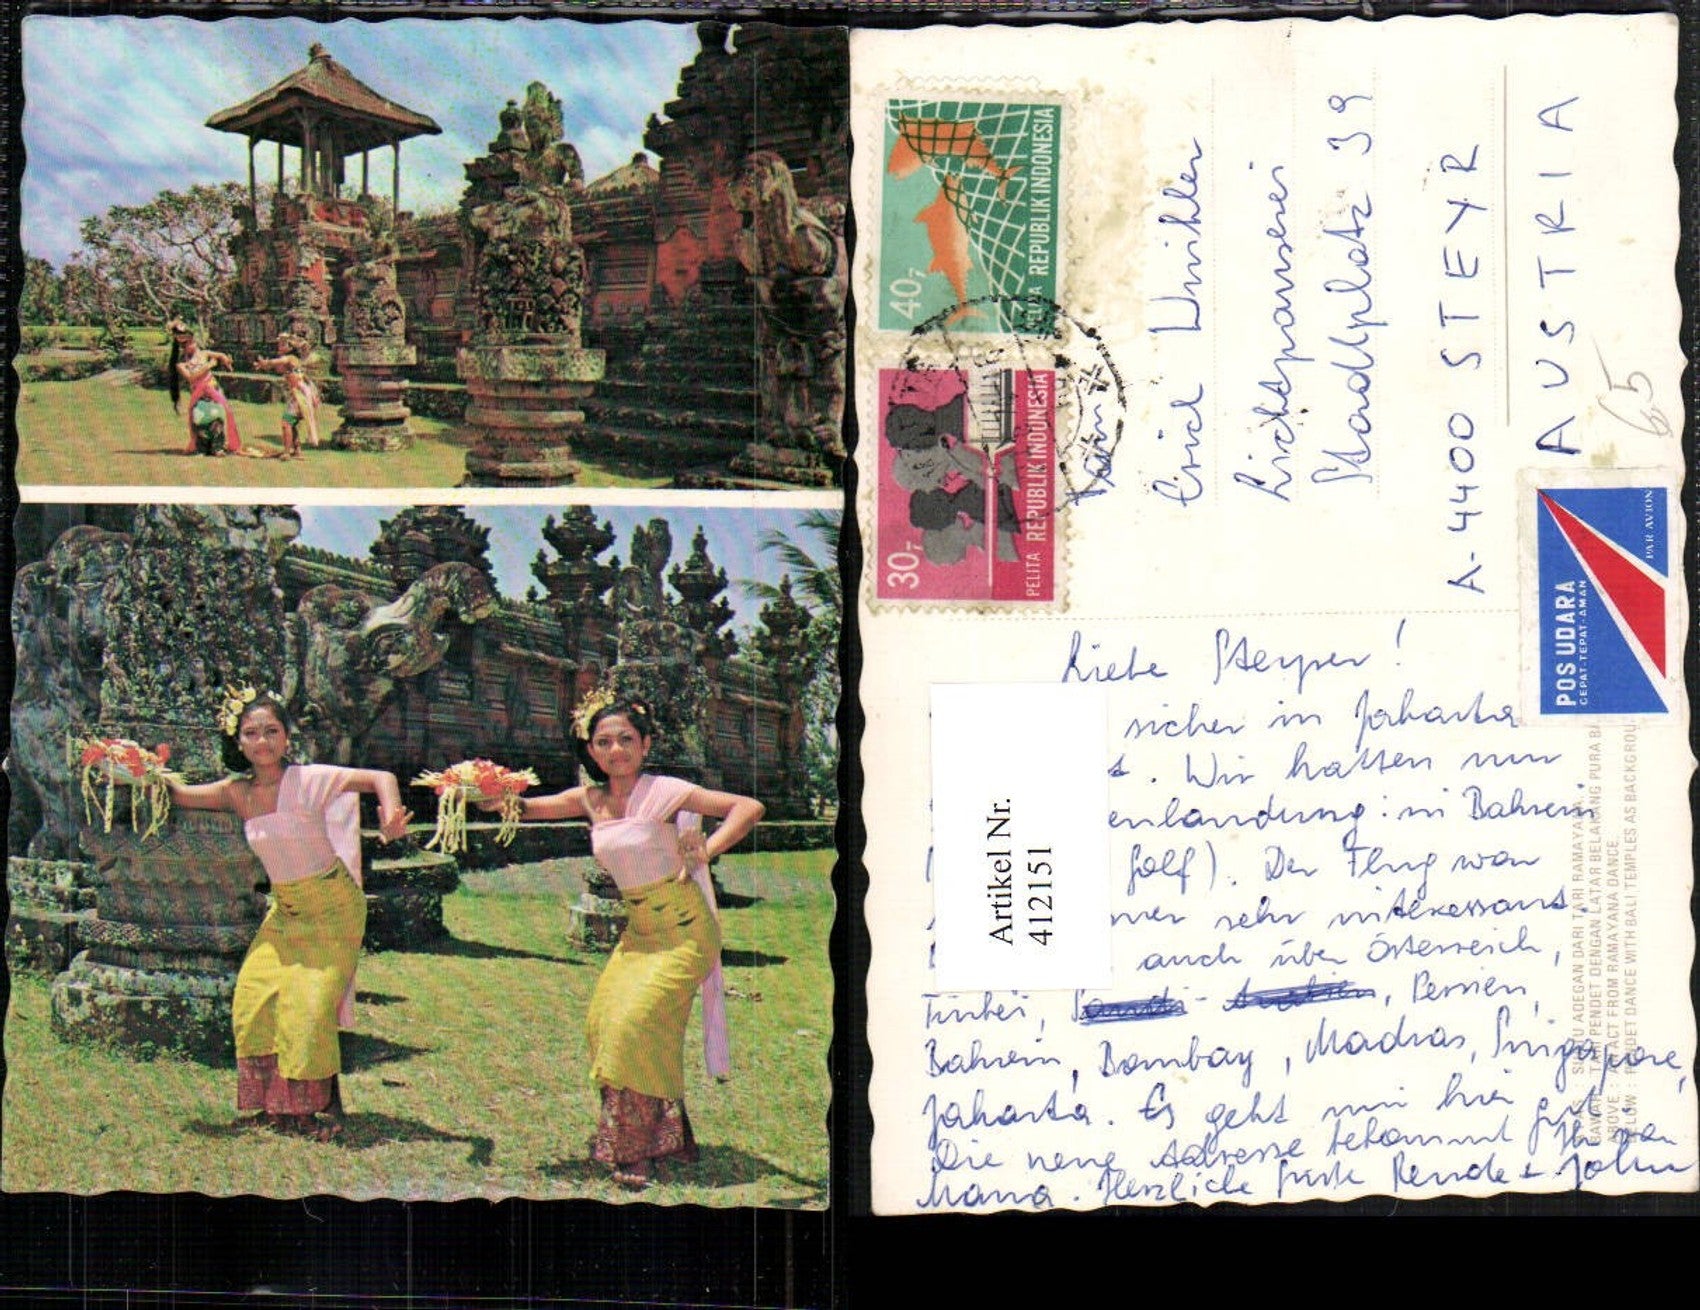 40,-
PELITA REPUBLIK INDONESIA
30,-
PELITA REPUBLIK INDONESIA
Erich
Stadtplatz 39
A-4400 STEYR
AUSTRIA
65
POS UDARA
CEPAT-TEPAT-AMAN
PAR AVION
Artikel Nr.
412151
Liebe Steyrer!
sicher in Jakarta
. Wir hatten nur
enlandung in Bahrein
Golf). Der Flug war
mer sehr interessant.
auch über Österreich,
Türkei, Persien,
Bahrein, Bombay, Madras, Singapore,
Jakarta. Es geht mir hier gut
Die neue Adresse bekommt Ihr von
Mama. Herzliche Grüße + John
ADEGAN DARI TARI RAMAYANA
TARI PENDET DENGAN LATAR BELAKANG PURA BA
ABOVE : ACT FROM RAMAYANA DANCE.
BELOW : PENDET DANCE WITH BALI TEMPLES AS BACKGROU